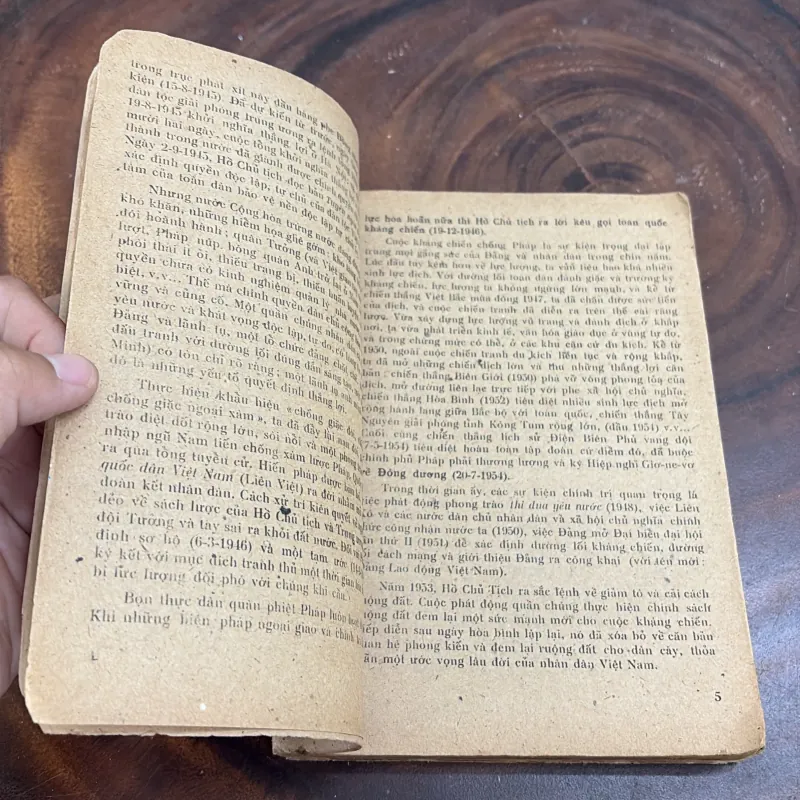 trong trục phát xít này đầu hàng
kiện (15-8-1945). Đã dự kiến từ trước,
dân tộc giải phóng trung ương ra lệnh
19-8-1945 khởi nghĩa thắng lợi ở Hà
mười hai ngày, cuộc tổng khởi nghĩa
thành trong nước đã giành được
Ngày 2-9-1945, Hồ Chủ tịch đọc bản
xác định quyền độc lập, tự chủ của dân
tâm của toàn dân bảo vệ nền độc lập tự
Nhưng nước Cộng hòa trưng nước
khó khăn, những hiểm họa ghê gớm:
đói hoành hành; quân Tưởng (và Việt
lượt, Pháp núp bóng quân Anh trở lại
phôi thai ít ỏi, thiếu trang bị, thiếu
quyền chưa có kinh nghiệm quản lý
biệt, v.v... Thế mà chính quyền dân chủ
vững và củng cố. Một quần chúng nhân dân
yêu nước và khát vọng độc lập, tự do, có
Đảng và lãnh tụ, một tổ chức đảng
đấu tranh với đường lối đúng đắn sáng
Minh) có tôn chỉ rõ ràng; một lãnh tụ
đó là những yếu tố quyết định thắng lợi.
Thực hiện khẩu hiệu «chống giặc đói,
chống giặc ngoại xâm», ta đã đẩy lui nạn
trào diệt dốt rộng lớn, sôi nổi và một phong
nhập ngũ Nam tiến chống xâm lược Pháp. Quốc
ra qua tổng tuyển cử. Hiến pháp được
quốc dân Việt Nam (Liên Việt) ra đời nhằm
đoàn kết nhân dân. Cách xử trí kiên quyết và
dẻo về sách lược của Hồ Chủ tịch và Trung
đội Tưởng và tay sai ra khỏi đất nước. Đối với
định sơ bộ (6-3-1946) và một tạm ước
ký kết với mục đích tranh thủ một thời gian
bị lực lượng đối phó với chúng khi cần.
Bọn thực dân quân phiệt Pháp luôn
Khi những biện pháp ngoại giao và chính
lực hòa hoãn nữa thì Hồ Chủ tịch ra lời kêu gọi toàn quốc
kháng chiến (19-12-1946).
Cuộc kháng chiến chống Pháp là sự kiện trọng đại tập
trung mọi gắng sức của Đảng và nhân dân trong chín năm.
Lúc đầu tuy kém hơn về lực lượng, ta vẫn tiêu hao khá nhiều
sinh lực địch. Với đường lối toàn dân đánh giặc và trường kỳ
kháng chiến, lực lượng ta không ngừng lớn mạnh, và kể từ
chiến thắng Việt Bắc mùa đông 1947, ta đã chặn được sức tiến
của địch, và cuộc chiến tranh đã diễn ra trên thế cài răng
lược. Vừa xây dựng lực lượng vũ trang và đánh địch ở khắp
nơi, ta vừa phát triển kinh tế, văn hóa giáo dục ở vùng tự do,
và trong chừng mức có thể, ở các khu căn cứ du kích. Kể từ
1950, ngoài cuộc chiến tranh du kích liên tục và rộng khắp,
ta đã mở những chiến dịch lớn và thu những thắng lợi căn
bản: chiến thắng Biên Giới (1950) phá vỡ vòng phong tỏa của
địch, mở đường liên lạc trực tiếp với phe xã hội chủ nghĩa,
chiến thắng Hòa Bình (1952) tiêu diệt nhiều sinh lực địch mở
rộng hành lang giữa Bắc bộ với toàn quốc, chiến thắng Tây
Nguyên giải phóng tỉnh Kông Tum rộng lớn, (đầu 1954) v.v...
Cuối cùng chiến thắng lịch sử Điện Biên Phủ vang dội
(7-5-1954) tiêu diệt hoàn toàn tập đoàn cứ điểm đó, đã buộc
chính phủ Pháp phải thương lượng và ký Hiệp nghị Giơ-ne-vơ
về Đông dương (20-7-1954).
Trong thời gian ấy, các sự kiện chính trị quan trọng là
việc phát động phong trào thi đua yêu nước (1948), việc Liên
xô và các nước dân chủ nhân dân và xã hội chủ nghĩa chính
thức công nhận nước ta (1950), việc Đảng mở Đại biểu đại hội
lần thứ II (1951) để xác định đường lối kháng chiến, đường
lối cách mạng và giới thiệu Đảng ra công khai (với tên mới:
Đảng Lao động Việt Nam).
Năm 1953, Hồ Chủ Tịch ra sắc lệnh về giảm tô và cải cách
ruộng đất. Cuộc phát động quần chúng thực hiện chính sách
ruộng đất đem lại một sức mạnh mới cho cuộc kháng chiến.
Tiếp diễn sau ngày hòa bình lập lại, nó đã xóa bỏ về căn bản
quan hệ phong kiến và đem lại ruộng đất cho dân cày, thỏa
mãn một ước vọng lâu đời của nhân dân Việt Nam.
5